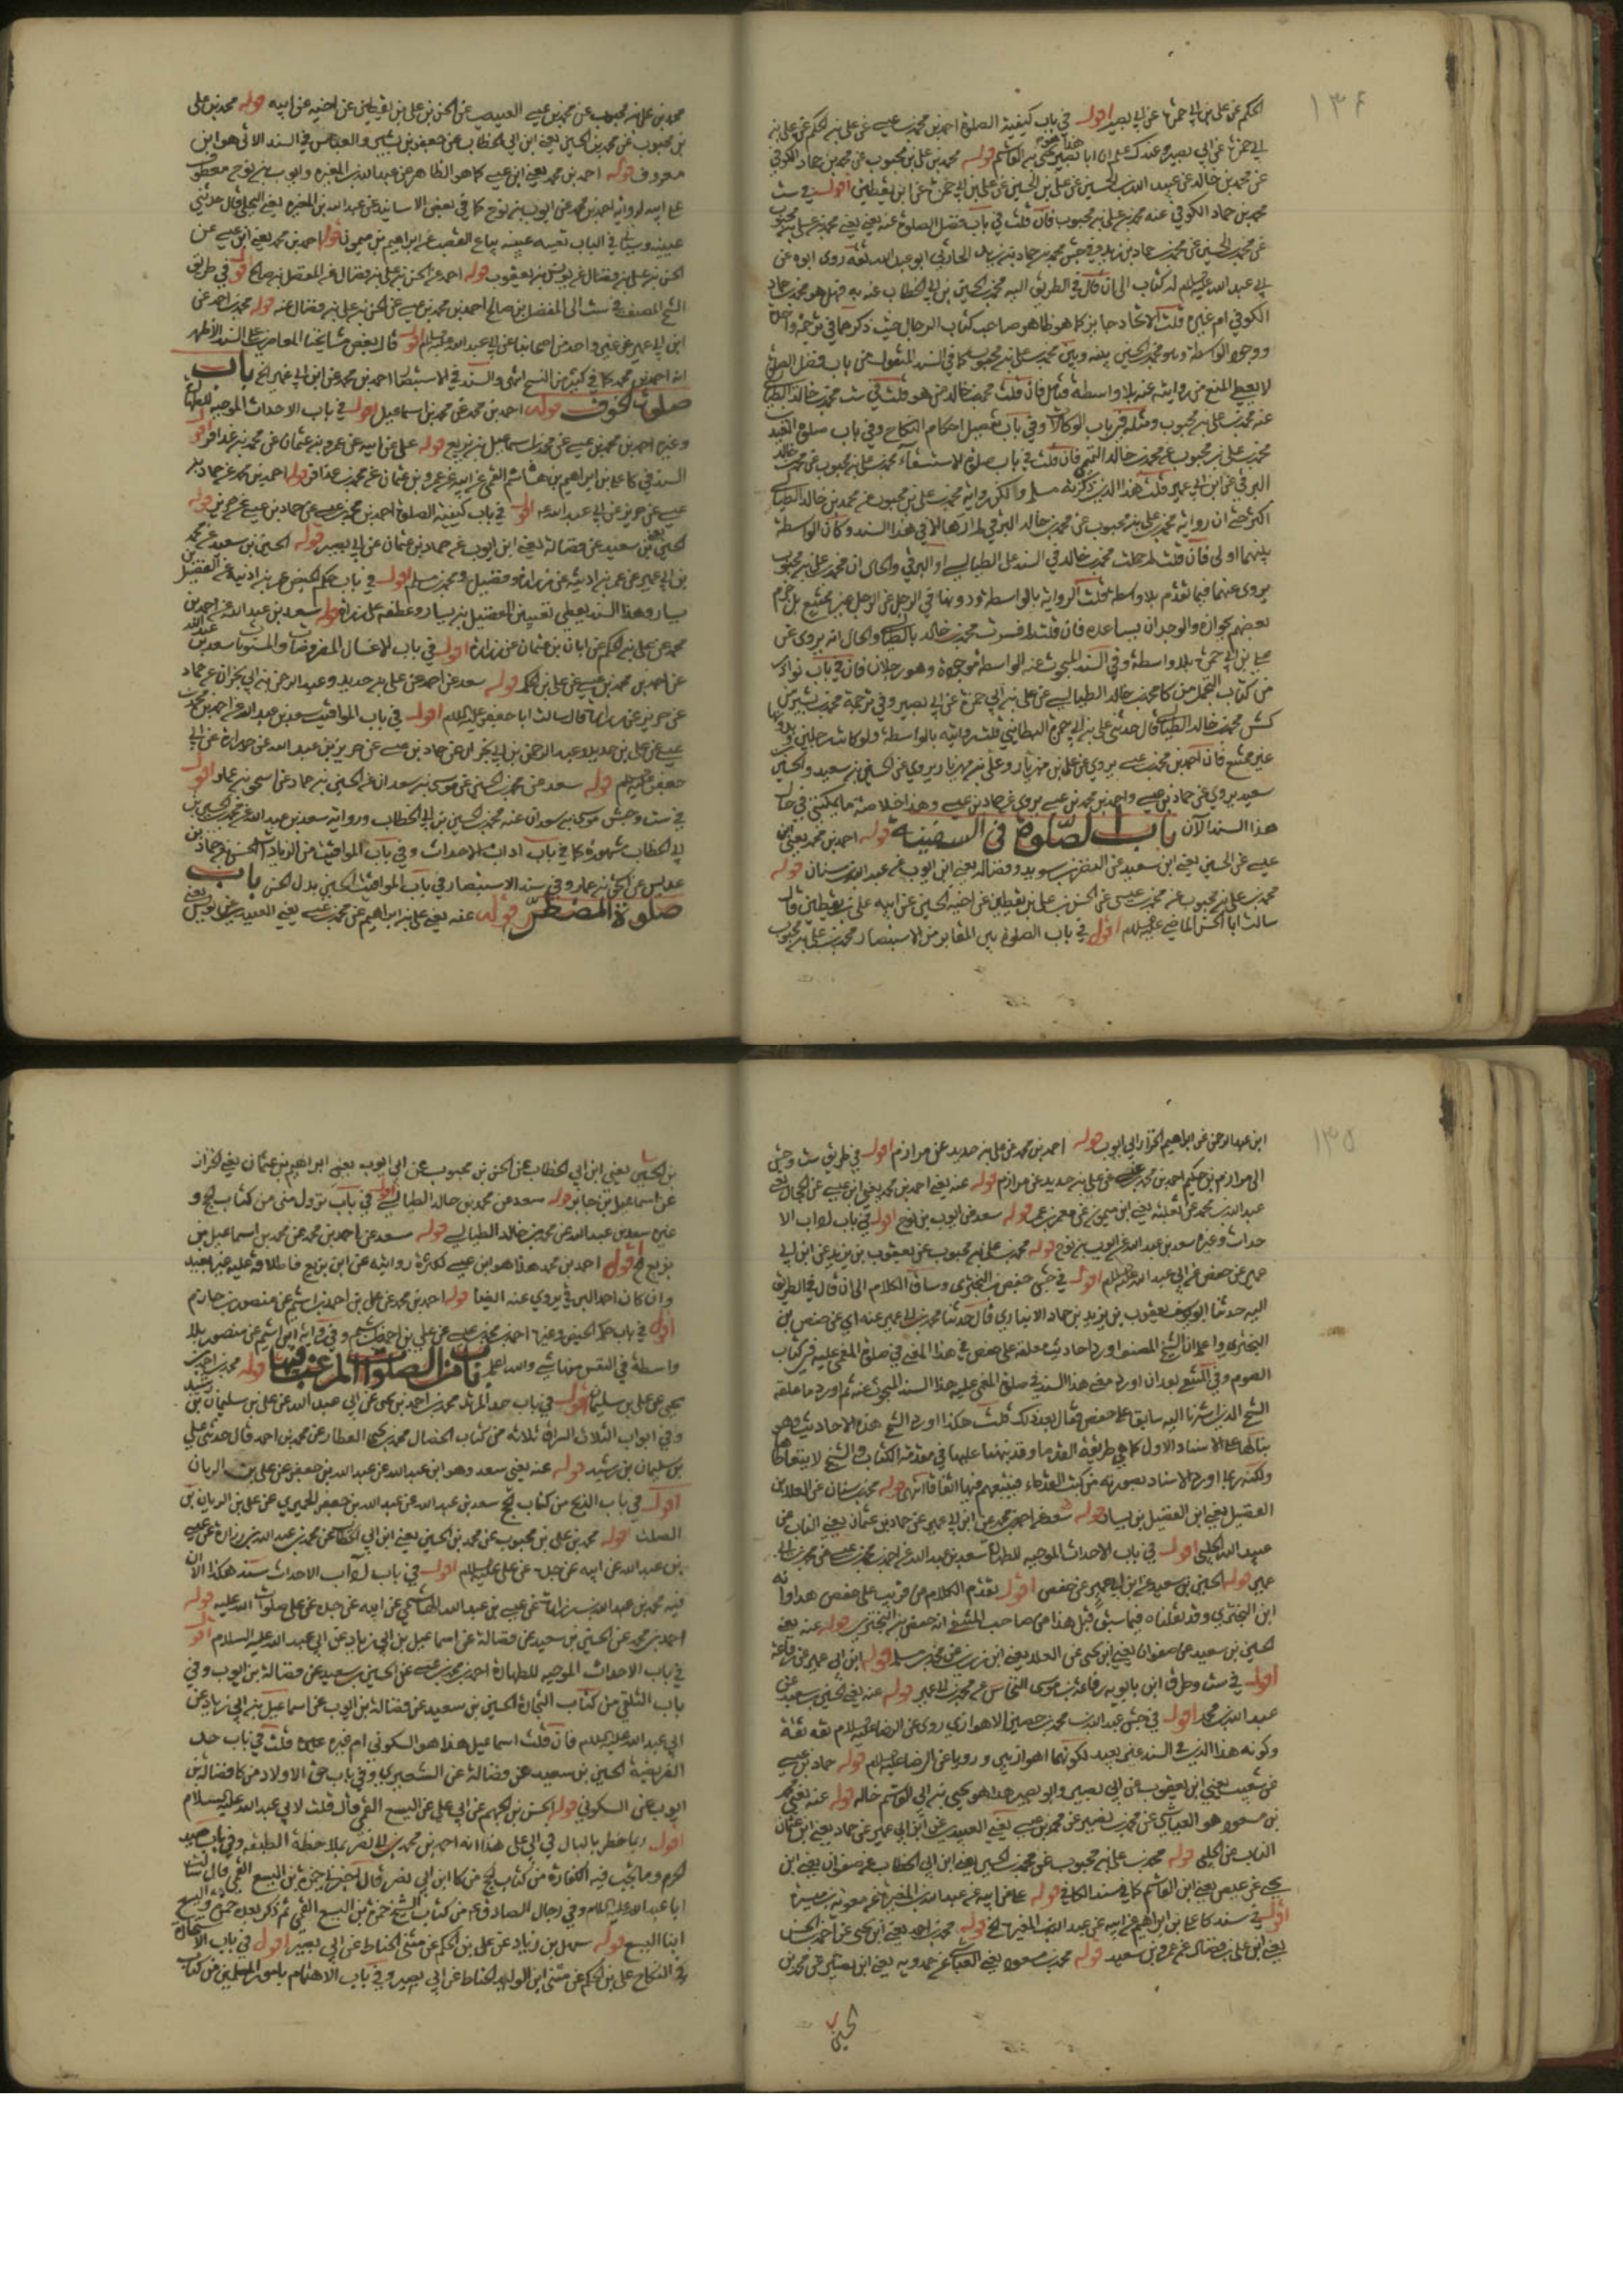 ١٣٤
الحكم عن علي بن ابي حمزة عن ابي بصير اقول في باب كيفية الصلوة احمد بن محمد بن عيسى عن علي بن الحكم عن علي بن
ابي حمزة عن ابي بصير
عن محمد بن خالد عن عبد الله بن الحسين عن علي بن الحسين عن علي بن ابي حمزة عن ابن يقطين اقول في ست
محمد بن حماد الكوفي عنه محمد بن علي بن محبوب فان قلت في باب فضل الصلوة عنه يعني محمد بن علي بن محبوب
عن محمد بن الحسين عن محمد بن حماد بن زيد وفي جش محمد بن حماد بن زيد الحارثي ابو عبد الله ثقة روى ابوه عن
ابي عبد الله عليه السلام له كتاب الى ان قال في الطريق اليه محمد بن الحسين بن ابي الخطاب عنه به فهل هو محمد بن حماد
الكوفي ام غيره قلت الاتحاد جايز كما هو ظاهر صاحب كتاب الرجال حيث ذكرهما في ترجمة واحدة
ووجود الواسطة وهو محمد بن الحسين بينه وبين محمد بن علي بن محبوب كما في السند المنقول من باب فضل الصلوة
لا يعطي المنع من روايته عنه بلا واسطة فتأمل فان قلت محمد بن خالد من هو قلت في ست محمد بن خالد الطيالسي
عنه محمد بن علي بن محبوب ومثله في باب الوكالات وفي باب تفصيل احكام النكاح وفي باب صلوة العيدين
محمد بن علي بن محبوب عن محمد بن خالد التميمي فان قلت في باب صلوة الاستسقاء محمد بن علي بن محبوب عن محمد بن خالد
البرقي عن ابن ابي عمير قلت هذا الذي ذكرته مسلم ولكن رواية محمد بن علي بن محبوب عن محمد بن خالد الطيالسي
اكثر حتى ان رواية محمد بن علي بن محبوب عن محمد بن خالد البرقي لم ارها الا في هذا السند وكان الواسطة
بينهما اولى فان قلت لم حملت محمد بن خالد في السند على الطيالسي او البرقي والحال ان محمد بن علي بن محبوب
يروي عنهما فيما تقدم بلا واسطة قلت الرواية بالواسطة ودونها في الرجل عن الرجل غير ممتنع بل جزم
بعضهم بجوازه والوجدان يساعده فان قلت لم فسرت محمد بن خالد بالطيالسي والحال انه يروي عن
علي بن ابي حمزة بلا واسطة وفي السند المبحوث عنه الواسطة موجودة وهو رجلان فان في باب نوادر
من كتاب التجمل من كا محمد بن خالد الطيالسي عن علي بن ابي حمزة عن ابي بصير وفي ترجمة محمد بن بشير من
كش محمد بن خالد الطيالسي قال حدثني علي بن ابي حمزة البطائني قلت روايته بالواسطة ولو كانت رجلين وبدونها
غير ممتنع فان احمد بن محمد بن عيسى يروي عن علي بن مهزيار وعلي بن مهزيار يروي عن الحسين بن سعيد والحسين بن
سعيد يروي عن حماد بن عيسى واحمد بن محمد بن عيسى يروي عن حماد بن عيسى وهذا خلاصة ما يمكنني في حال
هذا السند الآن باب الصلوة في السفينة قوله احمد بن محمد يعني ابن
عيسى عن الحسين يعني ابن سعيد عن النضر بن سويد وفضالة يعني ابن ايوب عن عبد الله بن سنان قوله
محمد بن علي بن محبوب عن محمد بن عيسى عن الحسن بن علي بن يقطين عن اخيه الحسين عن ابيه علي بن يقطين قال
سالت ابا الحسن الماضي عليه السلام اقول في باب الصلوة بين المقابر من الاستبصار محمد بن علي بن محبوب
محمد بن علي بن محبوب عن محمد بن عيسى العبيدي عن الحسن بن علي بن يقطين عن اخيه عن ابيه قوله محمد بن علي
بن محبوب عن محمد بن الحسين يعني ابن ابي الخطاب عن جعفر بن بشير والعباس في السند الاتي هو ابن
معروف قوله احمد بن محمد يعني ابن عيسى كما هو الظاهر عن عبد الله بن المغيره وايوب بن نوح معطوف
على ابيه لرواية احمد بن محمد عن ايوب بن نوح كما في بعض الاسانيد عن عبد الله بن المغيره يعني البجلي قال حدثني
عيينه وسياتي في الباب تعينه عيينه بياع القصب عن ابراهيم بن ميمون قوله احمد بن محمد يعني ابن عيسى عن
الحسن بن علي بن فضال عن يونس بن يعقوب قوله احمد عن الحسن بن علي بن فضال عن المفضل بن صالح اقول في طريق
الشيخ المصنف في ست الى المفضل بن صالح احمد بن محمد بن عيسى عن الحسن بن علي بن فضال عنه قوله محمد بن احمد عن
ابن ابي عمير عن غير واحد من اصحابنا عن ابي عبد الله عليه السلام اقول قال بعض مشايخنا المعاصرين على السند الاظهر
انه احمد بن محمد كما في كثير من النسخ انتهى والسند في الاستبصار احمد بن محمد عن ابن ابي عمير الخ باب
صلوة الخوف قوله احمد بن محمد عن محمد بن اسماعيل اقول في باب الاحداث الموجبة للطهارة
وغيره احمد بن محمد بن عيسى عن محمد بن اسماعيل بن بزيع قوله علي عن ابيه عن عمرو بن عثمان عن محمد بن عذافر اقول
السند في كا علي بن ابراهيم بن هاشم القمي عن ابيه عن عمرو بن عثمان عن محمد بن عذافر قوله احمد بن محمد عن حماد بن
عيسى عن حريز عن ابي عبد الله اقول في باب كيفية الصلوة احمد بن محمد بن عيسى عن حماد بن عيسى عن حريز قوله
الحسين يعني بن سعيد عن فضالة يعني ابن ايوب عن حماد بن عثمان عن ابي بصير قوله الحسين بن سعيد عن محمد
بن ابي عمير عن عمر بن اذينه عن زرارة وفضيل ومحمد بن مسلم اقول في باب حكم الحيض عمر بن اذينة عن الفضيل بن
يسار وهذا السند يعطي تعيين الفضيل بن يسار وعطفه على زرارة قوله سعد بن عبد الله عن احمد بن
محمد عن علي بن الحكم عن ابان بن عثمان عن زرارة اقول في باب الاغسال المفروضات والمسنونات سعد بن عبد الله
عن احمد بن محمد بن عيسى عن علي بن الحكم قوله سعد عن احمد عن علي بن حديد وعبد الرحمن بن ابي نجران عن حماد
عن حريز عن زرارة قال سالت ابا جعفر عليه السلام اقول في باب المواقيت سعد بن عبد الله عن احمد بن محمد بن
عيسى عن علي بن حديد وعبد الرحمن بن ابي نجران عن حماد بن عيسى عن حريز بن عبد الله عن زرارة عن ابي
جعفر عليه السلام قوله سعد عن محمد بن الحسين عن موسى بن سعدان عن الحسين بن حماد عن اسحق بن عمار اقول
في ست وجش موسى بن سعدان عنه محمد بن الحسين بن ابي الخطاب ورواية سعد بن عبد الله عن محمد بن الحسين بن
ابي الخطاب مشهورة كما في باب اداب الاحداث وفي باب المواقيت من الزيادات الحسن بن حماد بن
عديس عن اسحق بن عمار وفي سند الاستبصار في باب المواقيت الحسين بدل الحسن باب
صلوة المضطر قوله عنه يعني علي بن ابراهيم عن محمد بن عيسى يعني العبيدي عن يونس يعني
١٣٥
ابن عبد الرحمن عن ابراهيم الخزاز ابي ايوب قوله احمد بن محمد عن علي بن حديد عن مرازم اقول في طريق ست وجش
الى مرازم بن حكيم احمد بن محمد بن عيسى عن علي بن حديد عن مرازم قوله عنه يعني احمد بن محمد يعني ابن عيسى عن الحجال يعني
عبد الله بن محمد عن ثعلبة يعني ابن ميمون عن معمر بن عمر قوله سعد عن ايوب بن نوح اقول في باب اداب الا
حداث وغيره سعد بن عبد الله عن ايوب بن نوح قوله محمد بن علي بن محبوب عن يعقوب بن يزيد عن ابن ابي
عمير عن حفص عن ابي عبد الله عليه السلام اقول في جش حفص بن البختري وساق الكلام الى ان قال في الطريق
اليه حدثنا ابو يوسف يعقوب بن يزيد بن حماد الانباري قال حدثنا محمد بن ابي عمير عنه اي عن حفص بن
البختري واعلم ان الشيخ المصنف اورد احاديث معلقة على حفص في هذا المعنى في صلوة المغمى عليه في كتاب
الصوم وفي المنتقى بعد ان اورد
الشيخ الذي اشرنا اليه سابقا على حفص فقال بعد ذلك قلت هكذا اورد الشيخ هذه الاحاديث وهو
بناها على الاسناد الاول كما هي طريقة القدما وقد نبهنا عليها في مقدمة الكتاب والشيخ لا يتعاطاها
ولكنه ربما اورد الاسناد بصورته من كتب القدماء فيتبعهم فيها اتفاقا انتهى قوله محمد بن سنان عن العلا بن
الفضيل يعني ابن الفضيل بن يسار قوله سعد عن احمد بن محمد عن ابن ابي عمير عن حماد بن عثمان يعني الناب عن
عبيد الله الحلبي اقول في باب الاحداث الموجبة للطهارة سعد بن عبد الله عن احمد بن محمد بن عيسى عن محمد بن ابي
عمير قوله الحسين بن سعيد عن ابن ابي عمير عن حفص اقول تقدم الكلام عن قريب على حفص هذا وانه
ابن البختري وقد نقلناه فيما سبق قبل هذا عن صاحب المنتقى انه حفص بن البختري قوله عنه يعني
الحسين بن سعيد عن صفوان يعني ابن يحيى عن العلا يعني ابن رزين عن محمد بن مسلم قوله ابن ابي عمير عن رفاعة
اقول في ست وطرق ابن بابويه رفاعة بن موسى النخاس عن محمد بن ابي عمير قوله عنه يعني الحسين بن سعيد عن
عبد الله بن محمد اقول في جش عبد الله بن محمد بن حصين الاهوازي روى عن الرضا عليه السلام ثقة ثقة
وكونه هذا الذي في السند غير بعيد لكونهما اهوازيين ورويا عن الرضا عليه السلام قوله حماد بن عيسى
عن شعيب يعني ابن يعقوب عن ابي بصير وابو بصير هذا هو يحيى بن ابي القسم خاله قوله عنه يعني محمد
بن مسعود هو العياشي عن محمد بن نصير عن محمد بن عيسى يعني العبيدي عن ابن ابي عمير عن حماد يعني ابن عثمان
الناب عن الحلبي قوله محمد بن علي بن محبوب عن محمد بن الحسين يعني ابن ابي الخطاب عن صفوان يعني ابن
يحيى عن عيص يعني ابن القاسم كما في سند الكافي قوله علي عن ابيه عن عبد الله بن المغيرة عن معوية بن ميسرة
اقول في سند كا علي بن ابراهيم عن ابيه عن عبد الله بن المغيرة الخ قوله محمد بن احمد يعني ابن يحيى عن احمد بن الحسن
يعني ابن علي بن فضال عن عمرو بن سعيد قوله محمد بن مسعود يعني العياشي عن حمدويه يعني ابن نصير عن محمد بن
الحسين
بن الحسين يعني ابن ابي الخطاب عن الحسن بن محبوب عن ابي ايوب يعني ابراهيم بن عثمان يعني الخزاز
عن اسماعيل بن جابر قوله سعد عن محمد بن خالد الطيالسي اقول في باب نزول منى من كتاب الحج و
غيره سعد بن عبد الله عن محمد بن خالد الطيالسي قوله سعد عن احمد بن محمد عن محمد بن اسماعيل بن
بزيع الخ اقول احمد بن محمد هذا هو ابن عيسى لكثرة روايته عن ابن بزيع فاطلاقه عليه غير بعيد
وان كان احمد البرقي يروي عنه ايضا قوله احمد بن محمد عن علي بن احمد بن اشيم عن منصور بن حازم
اقول في باب حكم الحيض وغيره احمد بن محمد بن عيسى عن علي بن احمد بن اشيم وفي رواية ابن اشيم عن منصور بلا
واسطة في النفس منها شيء والله اعلم باب من الصلوات المرغب فيها قوله محمد بن احمد بن
يحيى عن علي بن سليمان اقول في باب حد المرتد محمد بن احمد بن يحيى عن ابي عبد الله عن علي بن سليمان بن رشيد
وفي ابواب الثلاث المراة ثلاثة من كتاب الخصال محمد بن يحيى العطار عن محمد بن احمد قال حدثني علي
بن سليمان بن رشيد قوله عنه يعني سعد وهو ابن عبد الله عن عبد الله بن جعفر عن علي بن الريان
اقول في باب الذبح من كتاب الحج سعد بن عبد الله عن عبد الله بن جعفر الحميري عن علي بن الريان بن
الصلت قوله محمد بن علي بن محبوب عن محمد بن الحسين يعني ابن ابي الخطاب عن محمد بن عبد الله بن زرارة عن عيسى
بن عبد الله عن ابيه عن جده عن علي عليه السلام اقول في باب اداب الاحداث سند هكذا الا ان
فيه محمد بن عبد الله بن زرارة عن عيسى بن عبد الله الهاشمي عن ابيه عن جده عن علي صلوات الله عليه قوله
احمد بن محمد عن الحسين بن سعيد عن فضالة عن اسماعيل بن ابي زياد عن ابي عبد الله عليه السلام اقو
في باب الاحداث الموجبه للطهارة احمد بن محمد بن عيسى عن الحسين بن سعيد عن فضالة بن ايوب وفي
باب التلقي من كتاب التجارة الحسين بن سعيد عن فضالة بن ايوب عن اسماعيل بن ابي زياد عن
ابي عبد الله عليه السلام فان قلت اسماعيل هذا هو السكوني ام غيره قلت في باب حد
الفريضة الحسين بن سعيد عن فضالة عن الشعيري وفي باب حق الاولاد من كا فضالة بن
ايوب عن السكوني قوله الحسن بن الجهم عن ابي علي عن اليسع القمي قال قلت لابي عبد الله عليه السلام
اقول ربما خطر بالبال في ابي علي هذا انه احمد بن محمد بن ابي نصر بملاحظة الطبقه وفي باب صيد
الحرم وما يجب فيه الكفارة من كتاب الحج من كا ابن ابي نصر قال اخبرنا حمزة بن اليسع القمي قال سالت
ابا عبد الله عليه السلام وفي رجال الصادق من كتاب الشيخ حمزة بن اليسع القمي ثم ذكر بعده حمزة واليسع
ابنا اليسع قوله سهل بن زياد عن علي بن الحكم عن مثنى الحناط عن ابي بصير اقول في باب الاستخارة
في النكاح علي بن الحكم عن مثنى ابن الوليد الحناط عن ابي بصير وفي باب الاهتمام بامور المسلمين من كتاب